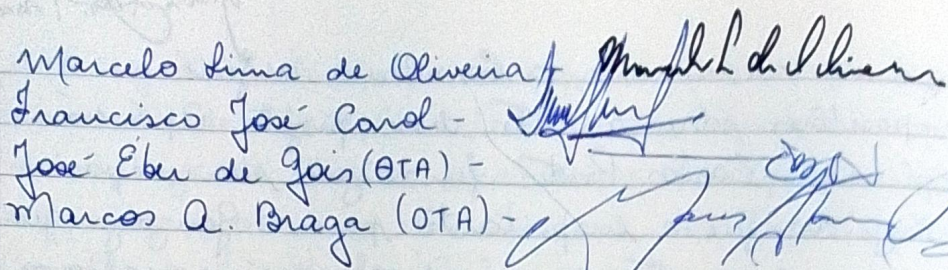 Marcelo Lima de Oliveira
Francisco José Card -
José Eber de Gois (OTA) -
Marcos A. Braga (OTA) -